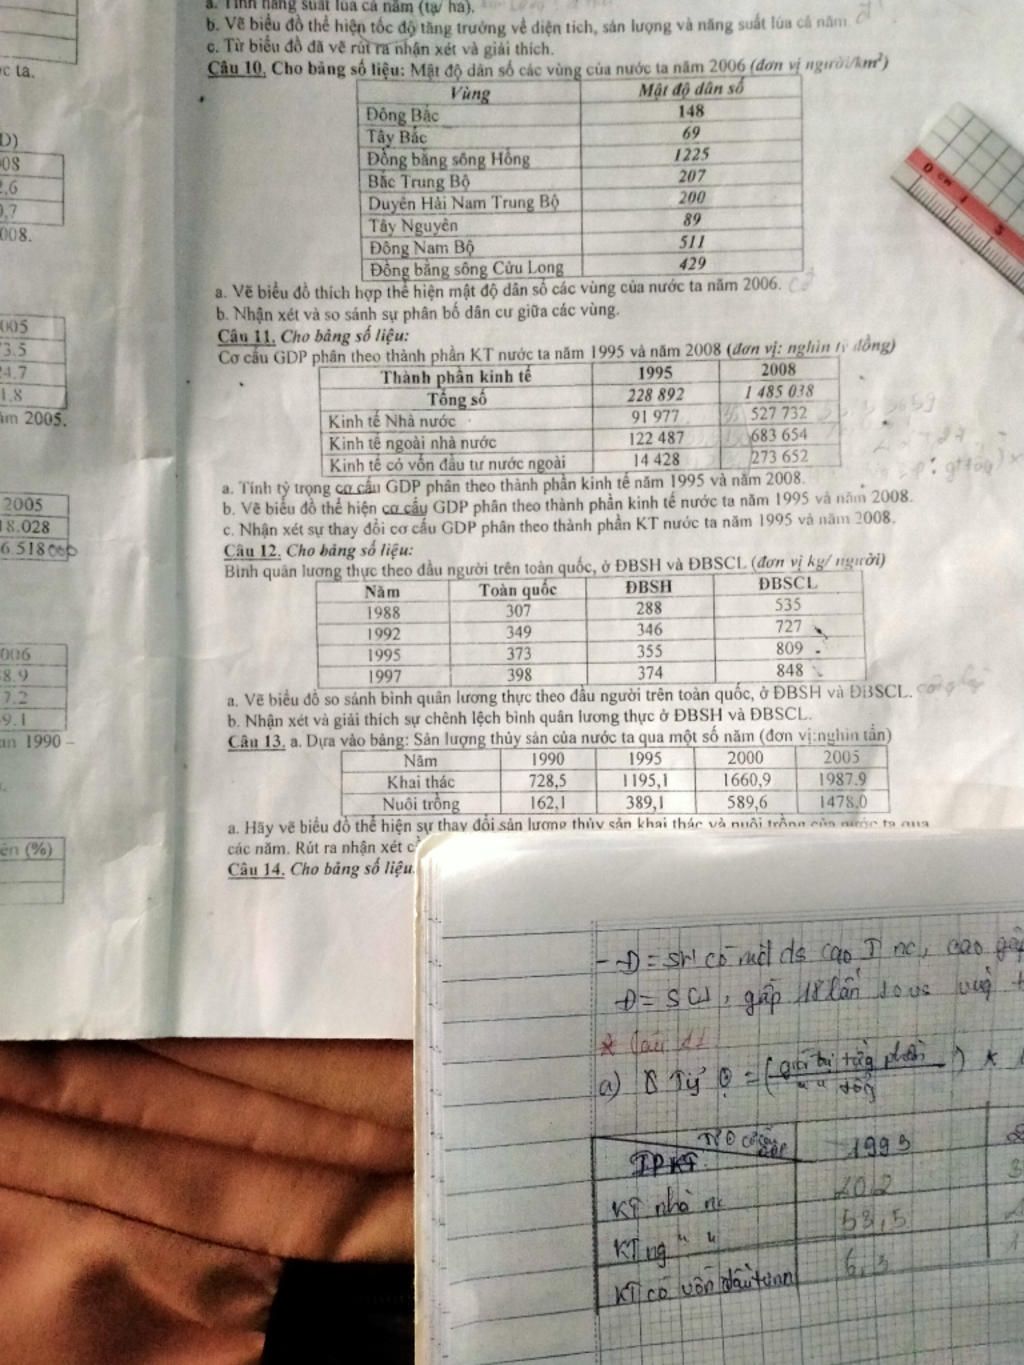 a. Tính năng suất lúa cả năm (tạ/ ha).
b. Vẽ biểu đồ thể hiện tốc độ tăng trưởng về diện tích, sản lượng và năng suất lúa cả năm
c. Từ biểu đồ đã vẽ rút ra nhận xét và giải thích.
Câu 10. Cho bảng số liệu: Mật độ dân số các vùng của nước ta năm 2006 (đơn vị người/km²)
Vùng Mật độ dân số
Đông Bắc 148
Tây Bắc 69
Đồng bằng sông Hồng 1225
Bắc Trung Bộ 207
Duyên Hải Nam Trung Bộ 200
Tây Nguyên 89
Đông Nam Bộ 511
Đồng bằng sông Cửu Long 429
a. Vẽ biểu đồ thích hợp thể hiện mật độ dân số các vùng của nước ta năm 2006.
b. Nhận xét và so sánh sự phân bố dân cư giữa các vùng.
Câu 11. Cho bảng số liệu:
Cơ cấu GDP phân theo thành phần KT nước ta năm 1995 và năm 2008 (đơn vị: nghìn tỷ đồng)
Thành phần kinh tế 1995 2008
Tổng số 228 892 1 485 038
Kinh tế Nhà nước 91 977 527 732
Kinh tế ngoài nhà nước 122 487 683 654
Kinh tế có vốn đầu tư nước ngoài 14 428 273 652
a. Tính tỷ trọng cơ cấu GDP phân theo thành phần kinh tế năm 1995 và năm 2008.
b. Vẽ biểu đồ thể hiện cơ cấu GDP phân theo thành phần kinh tế nước ta năm 1995 và năm 2008.
c. Nhận xét sự thay đổi cơ cấu GDP phân theo thành phần KT nước ta năm 1995 và năm 2008.
Câu 12. Cho bảng số liệu:
Bình quân lương thực theo đầu người trên toàn quốc, ở ĐBSH và ĐBSCL (đơn vị kg/ người)
Năm Toàn quốc ĐBSH ĐBSCL
1988 307 288 535
1992 349 346 727
1995 373 355 809
1997 398 374 848
a. Vẽ biểu đồ so sánh bình quân lương thực theo đầu người trên toàn quốc, ở ĐBSH và ĐBSCL.
b. Nhận xét và giải thích sự chênh lệch bình quân lương thực ở ĐBSH và ĐBSCL.
Câu 13. a. Dựa vào bảng: Sản lượng thủy sản của nước ta qua một số năm (đơn vị:nghìn tấn)
Năm 1990 1995 2000 2005
Khai thác 728,5 1195,1 1660,9 1987.9
Nuôi trồng 162,1 389,1 589,6 1478,0
a. Hãy vẽ biểu đồ thể hiện sự thay đổi sản lượng thủy sản khai thác và nuôi trồng của nước ta qua
các năm. Rút ra nhận xét
Câu 14. Cho bảng số liệu
c ta.
D)
08
,6
,7
008.
005
3.5
4.7
1.8
ăm 2005.
2005
18.028
6 518
006
8.9
7.2
9.1
an 1990 –
ên (%)
- Đ = SH có mđ ds cao I nc, cao gấp
Đ = SCL, gấp 18 lần so vs vùg
* Câu 11
a)
TPKT 1995
KT nhà nc 40,2
KT ng " " 53,5
KT có vốn đầu tư nn 6,3